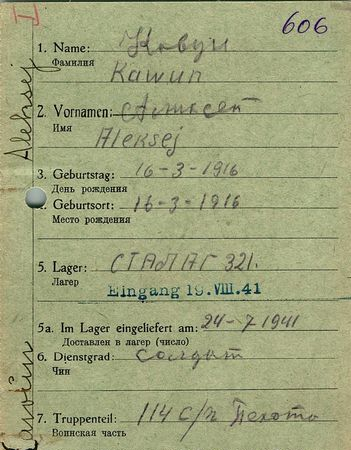 606
I
1. Name: Ковун
Фамилия
Kawun
2. Vornamen: Алексей
Имя
Aleksej
3. Geburtstag: 16-3-1916
День рождения
4. Geburtsort: 16-3-1916
Место рождения
5. Lager: СТАЛАГ 321.
Лагер
Eingang 19. VIII. 41
5a. Im Lager eingeliefert am: 24-7 1941
Доставлен в лагер (число)
6. Dienstgrad: солдат
Чин
7. Truppenteil: 114 с/п Пехота
Воинская часть
Aleksej